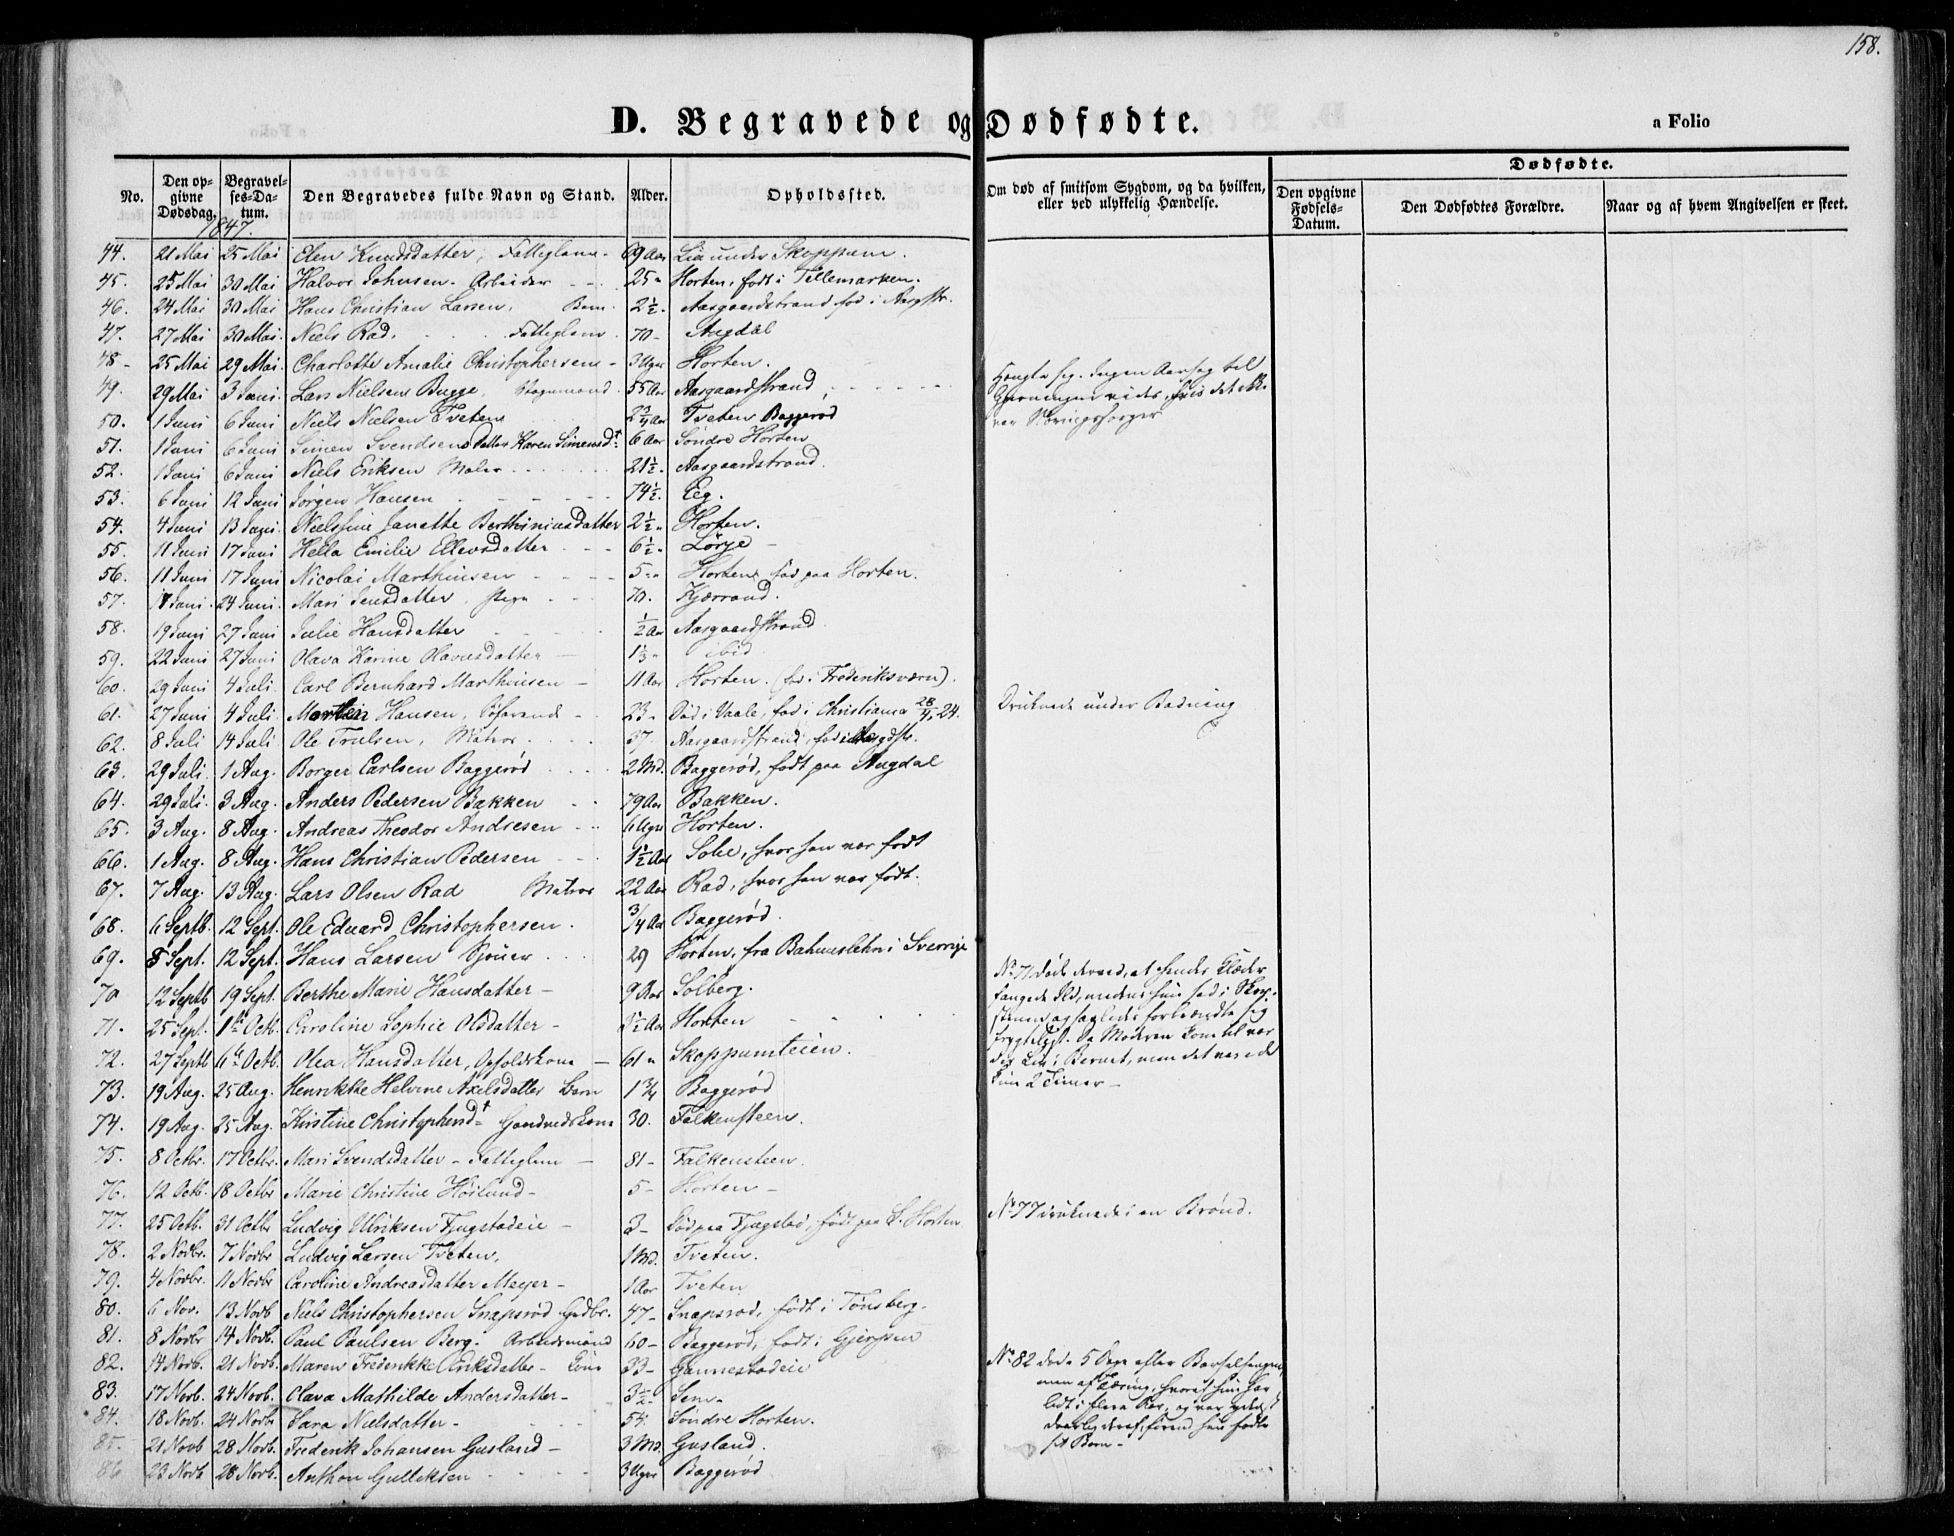 158.
D. Begravede og Dødfødte.
a Folio
No.
Den opgivne Dødsdag.
Begravelses-Datum.
Den Begravedes fulde Navn og Stand.
Alder.
Opholdssted.
Om død af smitsom Sygdom, og da hvilken, eller ved ulykkelig Hændelse.
Dødfødte.
Den opgivne Fødsels-Datum.
Den Dødfødtes Forældre.
Naar og af hvem Angivelsen er skeet.
1847.
44. 21 Mai 25 Mai Elen Knudsdatter, Fattiglem - 69 Aar Lia under Skoppum.
45. 25 Mai 30 Mai Halvor Johnsen. Arbeider - 25 " Horten, født i Tellemarken.
46. 24 Mai 30 Mai Hans Christian Larsen, Barn. 2½ - Aasgaardstrand fød i Aasgstr.
47. 27 Mai 30 Mai. Niels Rad, Fattiglem - 70 - Augdal
48 - 25 Mai 29 Mai. Charlotte Amalie Christophersen - 3 Uger Horten.
49. 29 Mai 3 Juni. Lars Nielsen Bugge, 55 Aar Aasgaardstrand, Hængte sig. Ingen Aarsag til
Gjerningen vides, hvis det ikke
var Næringssorger
50. 1 Juni 6 Juni Niels Nielsen Tveten 2¾ Aar Tveten Baggerød
51. 1 Juni 6 Juni Simen Svendsens datter Karen Simensdt. 6 Aar Søndre Horten
52. 1 Juni 6 Juni Niels Eriksen Maler 21½ - Aasgaardstrand.
53. 6 Juni 12 Juni Jørgen Hansen 74½. Eeg.
54. 4 Juni 13 Juni. Nielsine Janette Berthiniusdatter 2½ " Horten.
55. 11 Juni 17 Juni Hella Emilie Ellevsdatter 6½ " Lørge -
56. 11 Juni 17 Juni Nicolai Marthinsen 5 - " Horten, fød paa Horten.
57. 17 Juni. 24 Juni. Mari Jensdatter. Pige 70. Kjærrand.
58. 19 Juni 27 Juni Julie Hansdatter ½ Aar Aasgaardstrand
59. 22 Juni 27 Juni Olava Karine Olavusdatter - 1⅓ " ibid
60. 29 Juni 4 Juli. Carl Bernhard Marthinsen - 11 Aar Horten. (fød i Frederiksværn).
61. 27 Juni 4 Juli. Martin Hansen, Søfarende - 23 - Død i Vaale, fød i Christiania 28/4, 24. Druknede under Badning
62. 8 Juli 14 Juli Ole Trulsen, Matros 37 Aasgaardstrand, fød i Aasgdstr.
63. 29 Juli. 1 Aug. Borger Carlsen Baggerød 2 Md. Baggerød, født paa Augdal
64. 29 Juli. 3 Aug. Anders Pedersen Bakken 79 Aar Bakken.
65. 3 Aug. 8 Aug. Andreas Theodor Andresen 6 Uger Horten.
66. 1 Aug. 8 Aug. Hans Christian Pedersen 1½ Aar Solie, hvor han var født
67. 7 Aug. 13 Aug. Lars Olsen Rad Matros 22 Aar Rad, hvor han var født.
68. 6 Septb. 12 Sept. Ole Eduard Christophersen. ¾ Aar Baggerød.
69. 5 Sept. 12 Sept. Hans Larsen Sjøuer 29 Horten, fra Bahuuslehn i Sverrige
70 12 Septb 19 Sept. Berthe Marie Hansdatter - 9 Aar Solberg.
71. 25 Sept. 1ste Octb. Caroline Sophie Olsdatter - 2½ Aar Horten
No 71 døde derved, at hendes Klæder
fangede Ild, medens hun sad i Skor-
stenen og saaledes forbrændte sig
frygteligt. Da Moderen kom til var
dog Liv i Barnet, men det varede
kun 2 Timer -
72. 27 Septb 6te Octb. Olea Hansdatter, Opholdskone - 61 " Skoppumteien.
73. 19 Aug. 25 Aug. Henrikke Helvine Axelsdatter Barn 1¾ Baggerød
74. 19 Aug. 25 Aug. Kirstine Christophersdt. Gaardmandskone 30. Falkensteen.
75. 8 Octbr. 17 Octbr. Mari Svendsdatter - Fattiglem - 81 - Falkensteen.
76. 12 Octb. 18 Octbr Marie Christine Høslund - 5 - Horten -
77. 25 Octb. 31 Octbr Ludvig Ulriksen Fjugstadeie - 3 - Død paa Fjugstad, født paa S. Horten No 77 druknede i en Brønd.
78. 2 Novbr. 7 Novbr Ludvig Larsen Tveten, 1 Md. Tveten.
79. 4 Novbr. 11 Novbr Caroline Andreasdatter Meyer - 1 Aar Tveten
80. 6 Nov. 13 Novb Niels Christophersen Snapsrød Gdbr. 47 - Snapsrød, født i Tønsberg.
81. 8 Novbr 14 Novb. Paul Paulsen Berg. Arbeidsmand 60 - Baggerød, født i Gjerpen
82. 14 Novb. 21 Novb. Maren Frederikke Eriksdatter - Kone 33 - Gannestadeie
No 82 døde 5 Dage efter Barselsengen,
men af Tæring, hvoraf hun har
lidt i flere Aar, og var yderst
daarlig deraf, førend hun fødte
sit Barn -
83. 17 Novb. 24 Novb. Olava Mathilde Andersdatter - 3½ - Sem -
84. 18 Novb. 24 Novbr Sara Nielsdatter - 54. Søndre Horten.
85. 21 Novb 28 Novb. Frederik Johansen Gusland - 3 Md. Gusland.
86 23 Novb 28 Novb. Anthon Gulliksen 3 Uger Baggerød